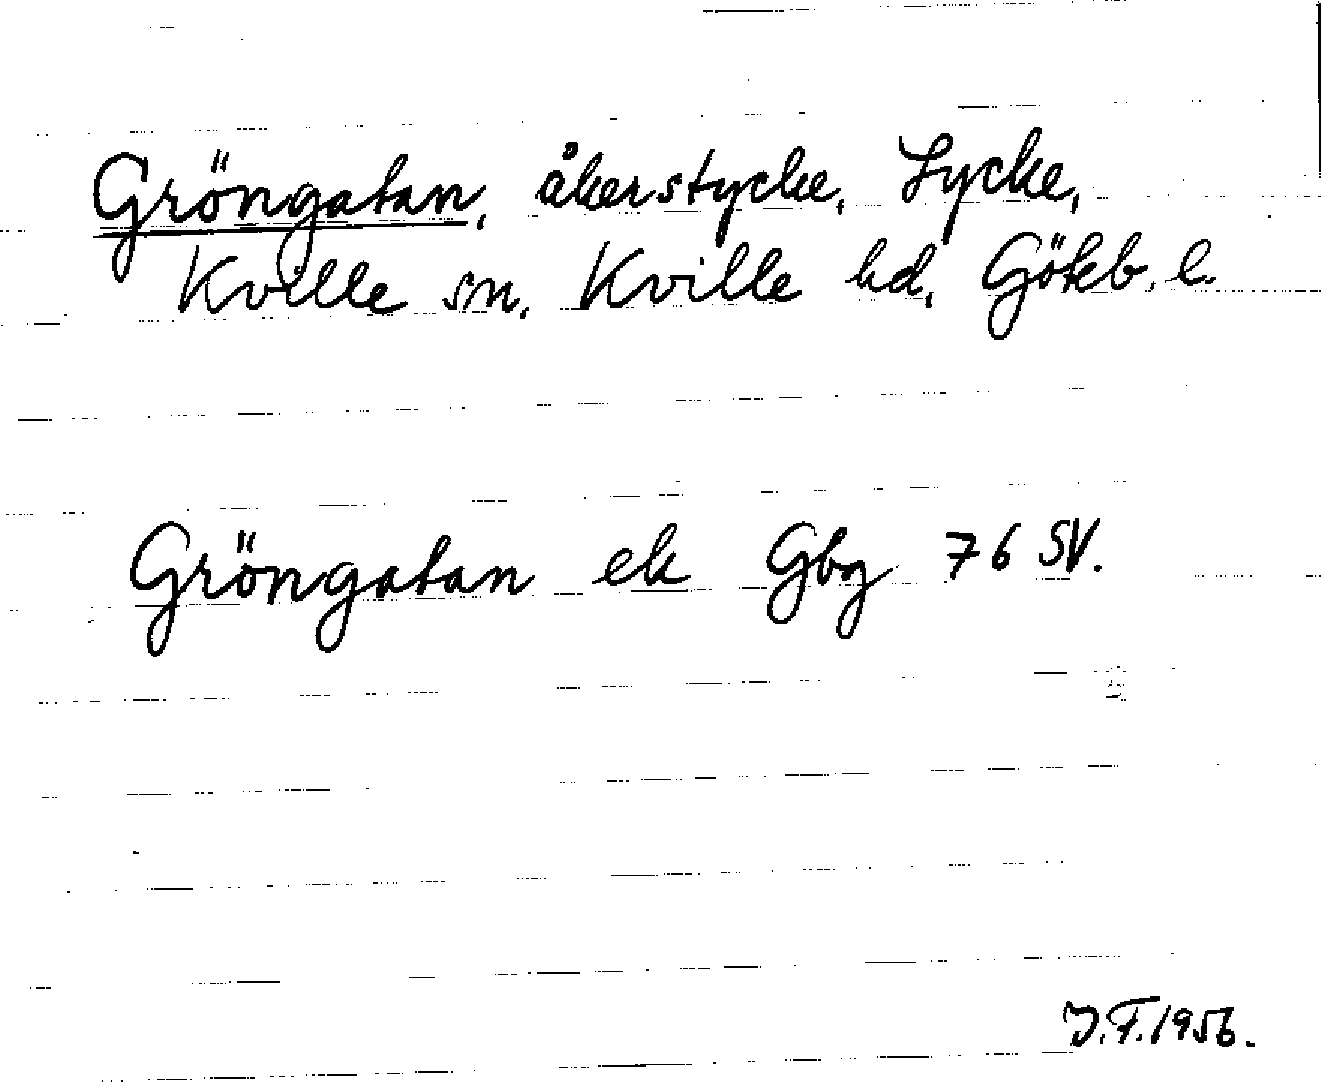 Gröngatan, åkerstycke, Lycke,
Kville sn. Kville hd, Göteb. l.
Gröngatan ek Gbg 76 SV.
J.F. 1956.